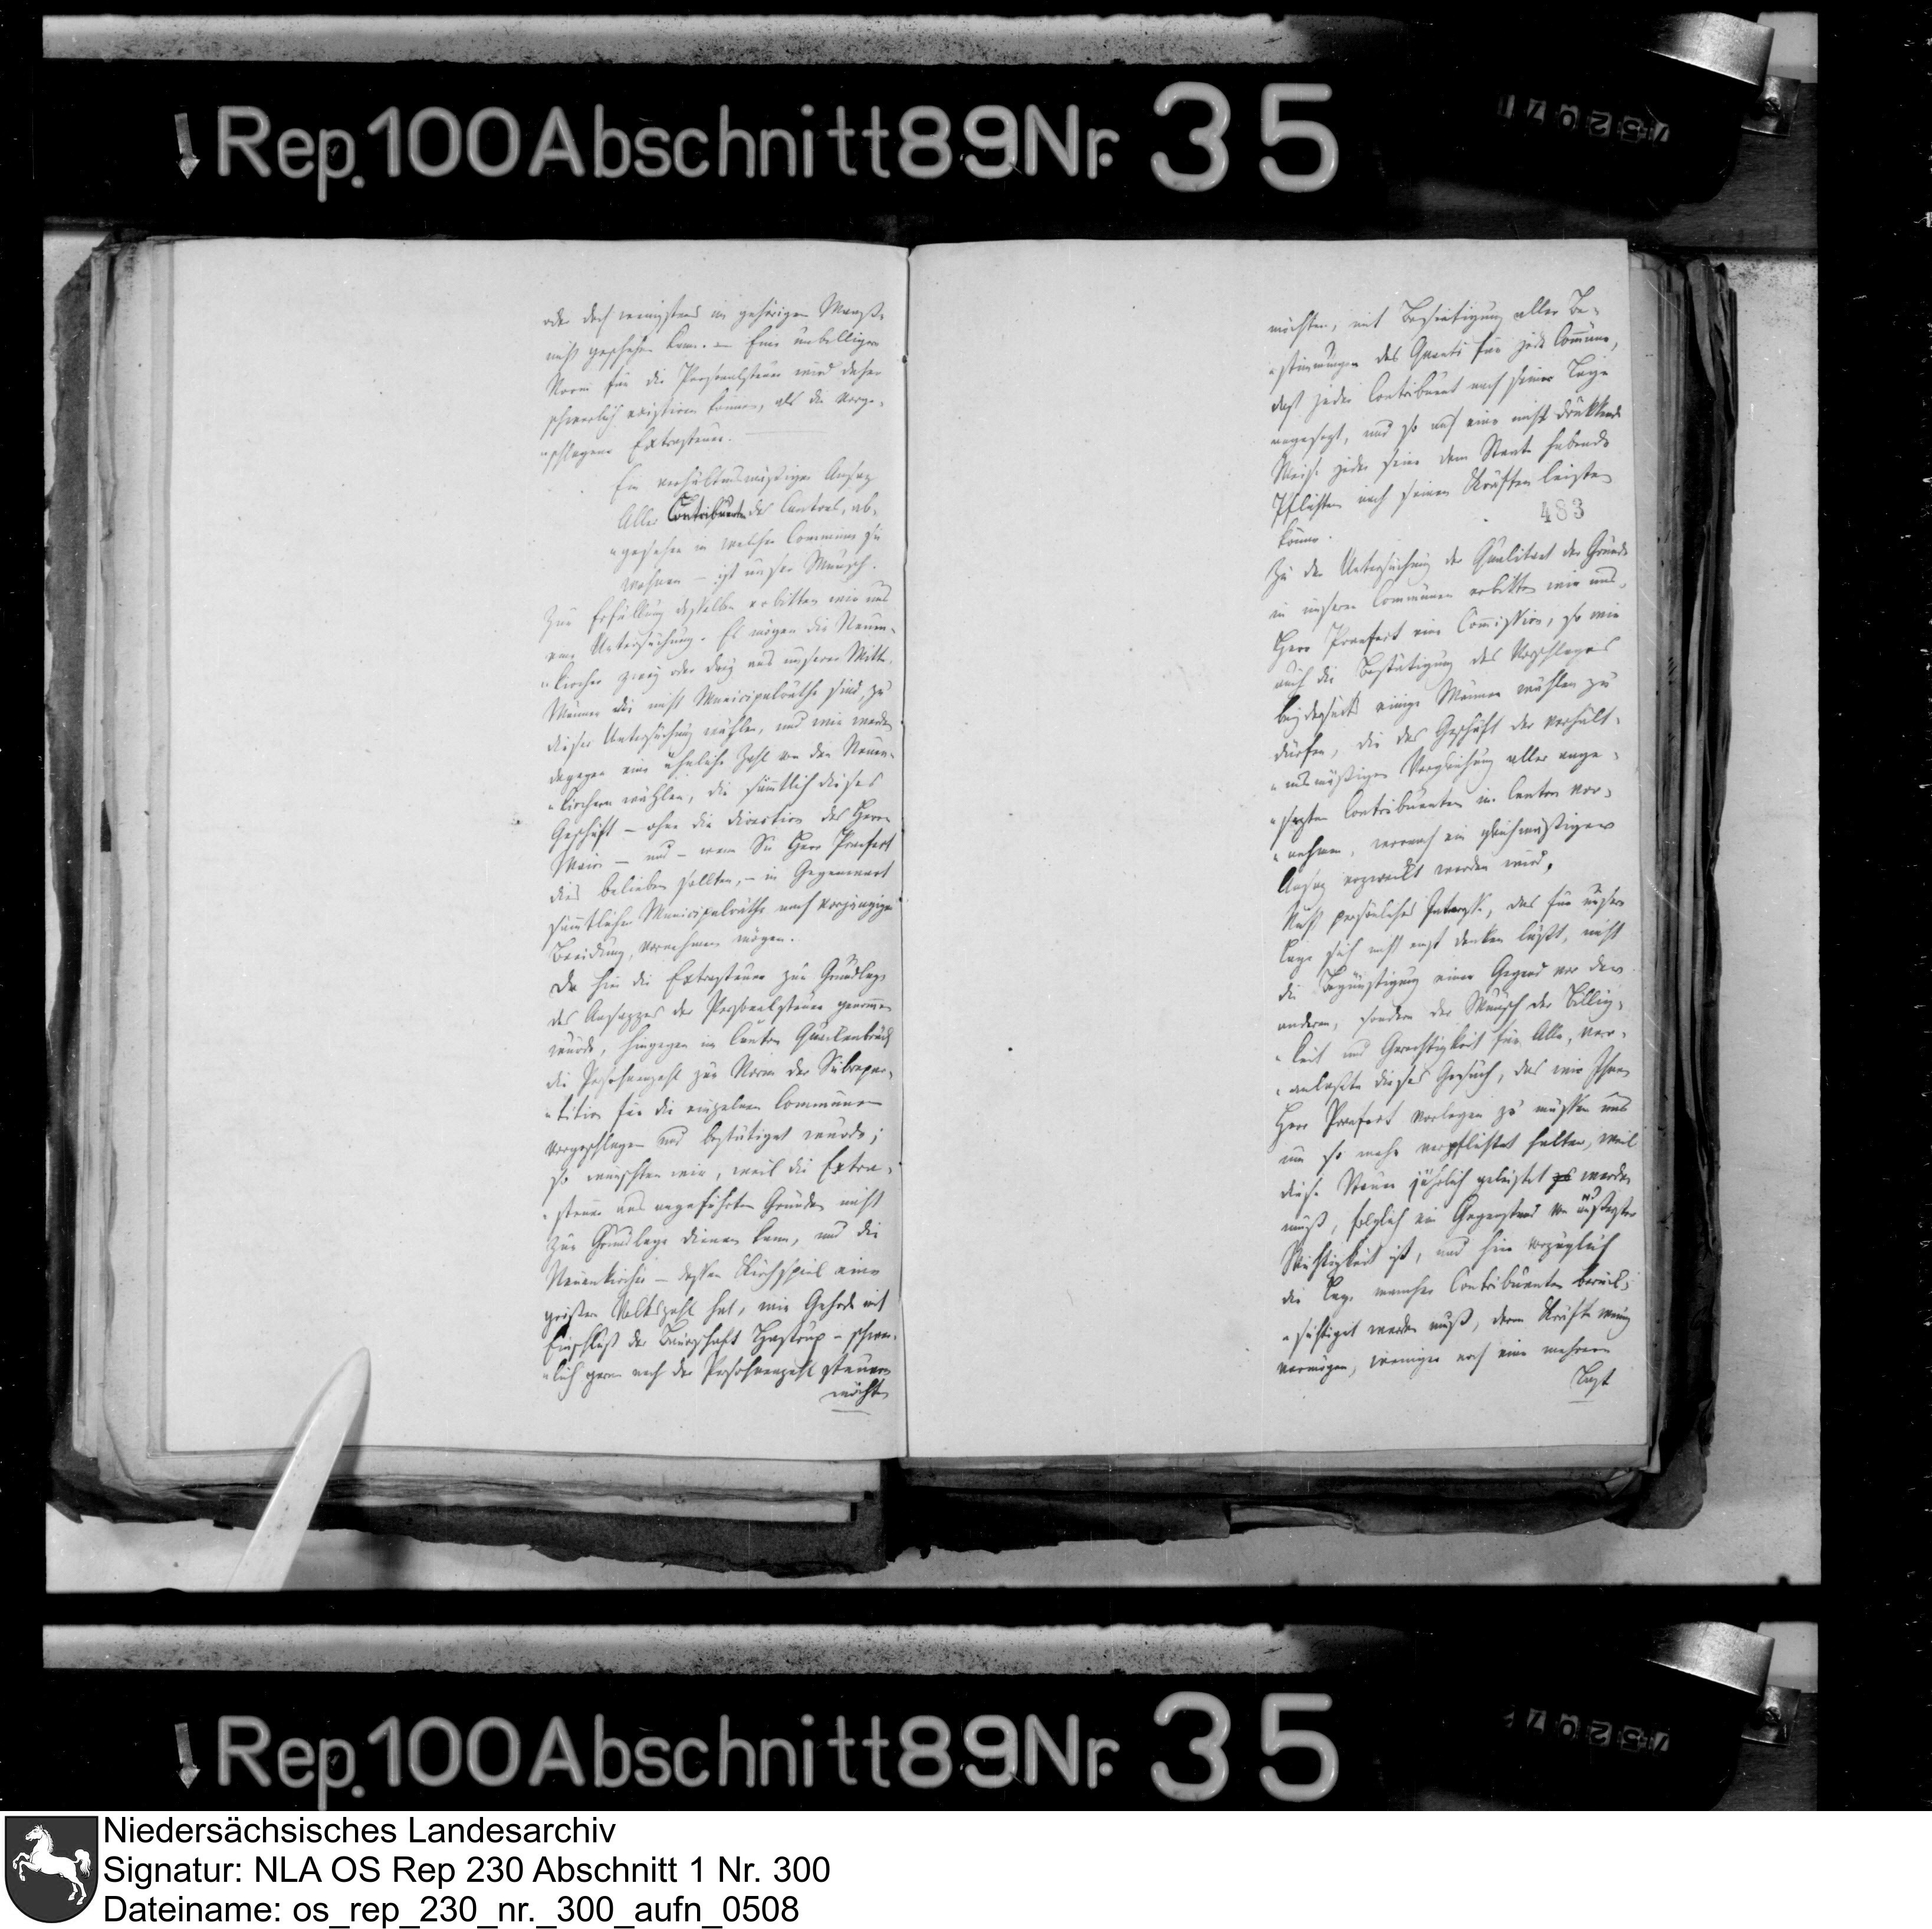 Rep. 100 Abschnitt 89 Nr. 35
oder doch wenigstens im gehörigen Maaße
nicht geschehen kann. — Eine unbilligere
Norm für die Personalsteuer wird daher
schwerlich existiren können, als die vorge-
"schlagene Extrasteuer.
Ein verhältnismäßiger Ansaz
Aller Contribuenten des Cantons, ab-
"gesehen in welcher Commune sie
wohnen — ist unser Wunsch.
Zur Erfüllung desselben erbitten wir uns
eine Untersuchung. Es mögen die Neuen-
"kircher zwey oder drey aus unserer Mitte,
Männer die nicht Municipalräthe sind, zu
dieser Untersuchung wählen, und wir werden
dagegen eine ähnliche Zahl von den Neuen-
"kirchern wählen, die sämtlich dieses
Geschäft — ohne die Direction des Herrn
Maire — und — wenn Sie Herr Praefect
dies belieben sollten, — in Gegenwart
sämtlicher Municipalräthe nach vorgängiger
Beeidung, vornehmen mögen.
Da hier die Extrasteuer zur Grundlage
des Ansazzes der Personalsteuer genommen
wurde, hingegen im Canton Quackenbrück
die Persohnenzahl zur Norm der Subrepar-
"tition für die einzelnen Communen
vorgeschlagen und bestätiget wurde;
so wünschten wir, weil die Extra-
"steuer aus angeführten Gründen nicht
zur Grundlage dienen kann, und die
Neuenkircher — dessen Kirchspiel eine
größere Volkszahl hat, wie Gehrde mit
Einschluß der Baurschaft Hastrup — schwer-
"lich gern nach der Persohnenzahl steuern
möchten
möchten, mit Beseitigung aller Be-
"stimmungen des Quanti für jede Commune,
daß jeder Contribuent nach seiner Lage
angesezt, und so auf eine nicht drükkende
Weise jeder seine dem Staate habende
Pflichten nach seinen Kräften leisten
483
könne.
Zu der Untersuchung der Qualitaet der Gründe
in unseren Communen erbitten wir uns,
Herr Praefect eine Commission, so wie
auch die Bestätigung des Vorschlages
beyderseits einige Männer wählen zu
dürfen, die das Geschäft der verhält-
"nismäßigen Vergleichung aller ange-
"sezten Contribuenten im Canton vor-
"nehmen, wornach ein gleichmäßiger
Ansaz erzweckt werden wird.
Nicht persönliches Interesse, das für unsere
Lage sich nicht erst denken läßt, nicht
die Begünstigung einer Gegend vor der
anderen, sondern der Wunsch der Billig-
"keit und Gerechtigkeit für Alle, ver-
"anlaßte dieses Gesuch, das wir Ihnen
Herr Praefect vorlegen zu müssen uns
um so mehr verpflichtet halten, weil
diese Steuer jährlich geleistet werden
muß, folglich ein Gegenstand von äußerster
Wichtigkeit ist, und hier vorzüglich
die Lage mancher Contribuenten berük-
"sichtiget werden muß, deren Kräfte wenig
vermögen, weniger noch eine mehrere
Last
Rep. 100 Abschnitt 89 Nr. 35
Niedersächsisches Landesarchiv
Signatur: NLA OS Rep 230 Abschnitt 1 Nr. 300
Dateiname: os_rep_230_nr._300_aufn_0508